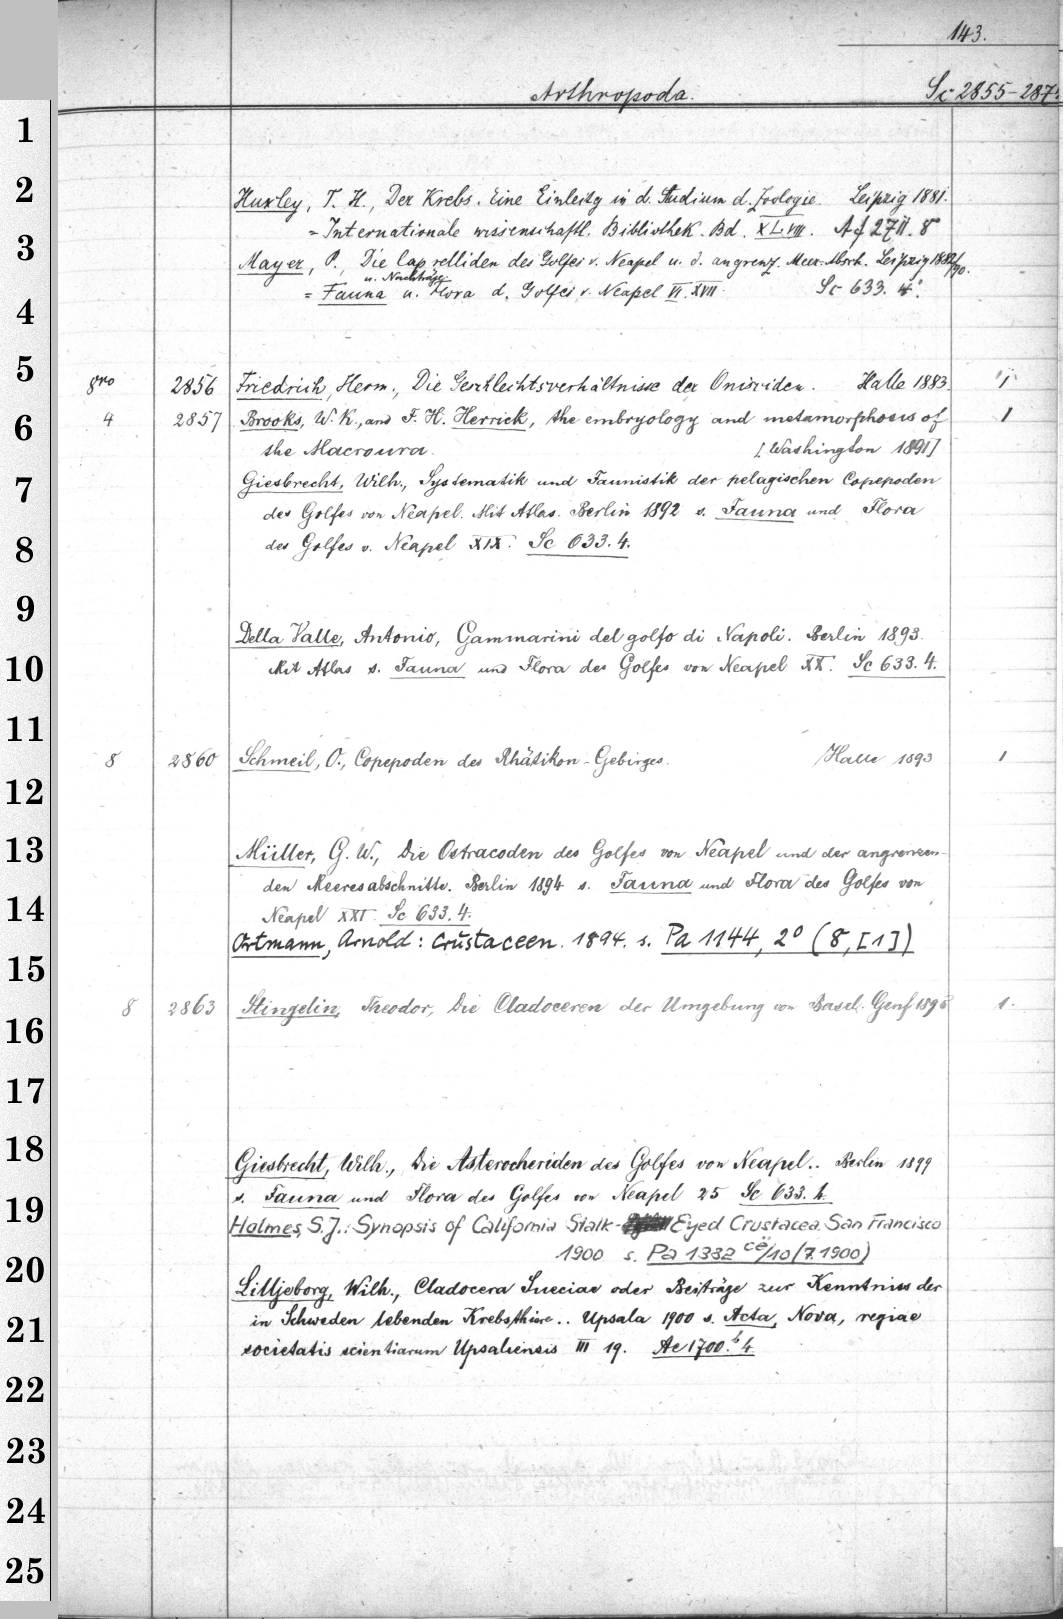 143.
Arthropoda. Sc 2855-287
1
2
Huxley, T. H., Der Krebs. Eine Einleitg in d. Studium d. Zoologie. Leipzig 1881.
= Internationale wissenschaftl. Bibliothek. Bd. XLVIII. Af 27II. 8°
3
Mayer, P., Die Caprelliden des Golfes v. Neapel u. d. angrenz. Meer. Absch. Leipzig 1882/90.
u. Nachträge
= Fauna u. Flora d. Golfes v. Neapel VI. XVII. Sc 633. 4°.
4
5
8vo 2856 Friedrich, Herm., Die Geschlechtsverhältnisse der Onisciden. Halle 1883. 1
6
4 2857 Brooks, W. K., and F. H. Herrick, the embryology and metamorphosis of 1
the Macroura. [Washington 1891]
7
Giesbrecht, Wilh., Systematik und Faunistik der pelagischen Copepoden
des Golfes von Neapel. Mit Atlas. Berlin 1892 s. Fauna und Flora
8
des Golfes v. Neapel XIX. Sc 633. 4.
9
Della Valle, Antonio, Gammarini del golfo di Napoli. Berlin 1893.
10
Mit Atlas s. Fauna und Flora des Golfes von Neapel XX. Sc 633. 4.
11
8 2860 Schmeil, O., Copepoden des Rhätikon-Gebirges. Halle 1893 1
12
13
Müller, G. W., Die Ostracoden des Golfes von Neapel und der angrenzen-
den Meeresabschnitte. Berlin 1894 s. Fauna und Flora des Golfes von
14
Neapel XXI. Sc 633. 4.
Ortmann, Arnold: Crustaceen. 1894. s. Pa 1144, 2° (8,[1])
15
8 2863 Stingelin, Theodor, Die Cladoceren der Umgebung von Basel. Genf 1895 1.
16
17
18
Giesbrecht, Wilh., Die Asterocheriden des Golfes von Neapel.. Berlin 1899
19
s. Fauna und Flora des Golfes von Neapel 25 Sc 633. 4.
Holmes, S. J.: Synopsis of California Stalk-Eyed Crustacea. San Francisco
1900 s. Pa 1332 cë/10 (7. 1900)
20
Lilljeborg, Wilh., Cladocera Sueciae oder Beiträge zur Kenntniss der
in Schweden lebenden Krebsthiere.. Upsala 1900 s. Acta, Nova, regiae
21
societatis scientiarum Upsaliensis III 19. Ae 1700.b 4.
22
23
24
25